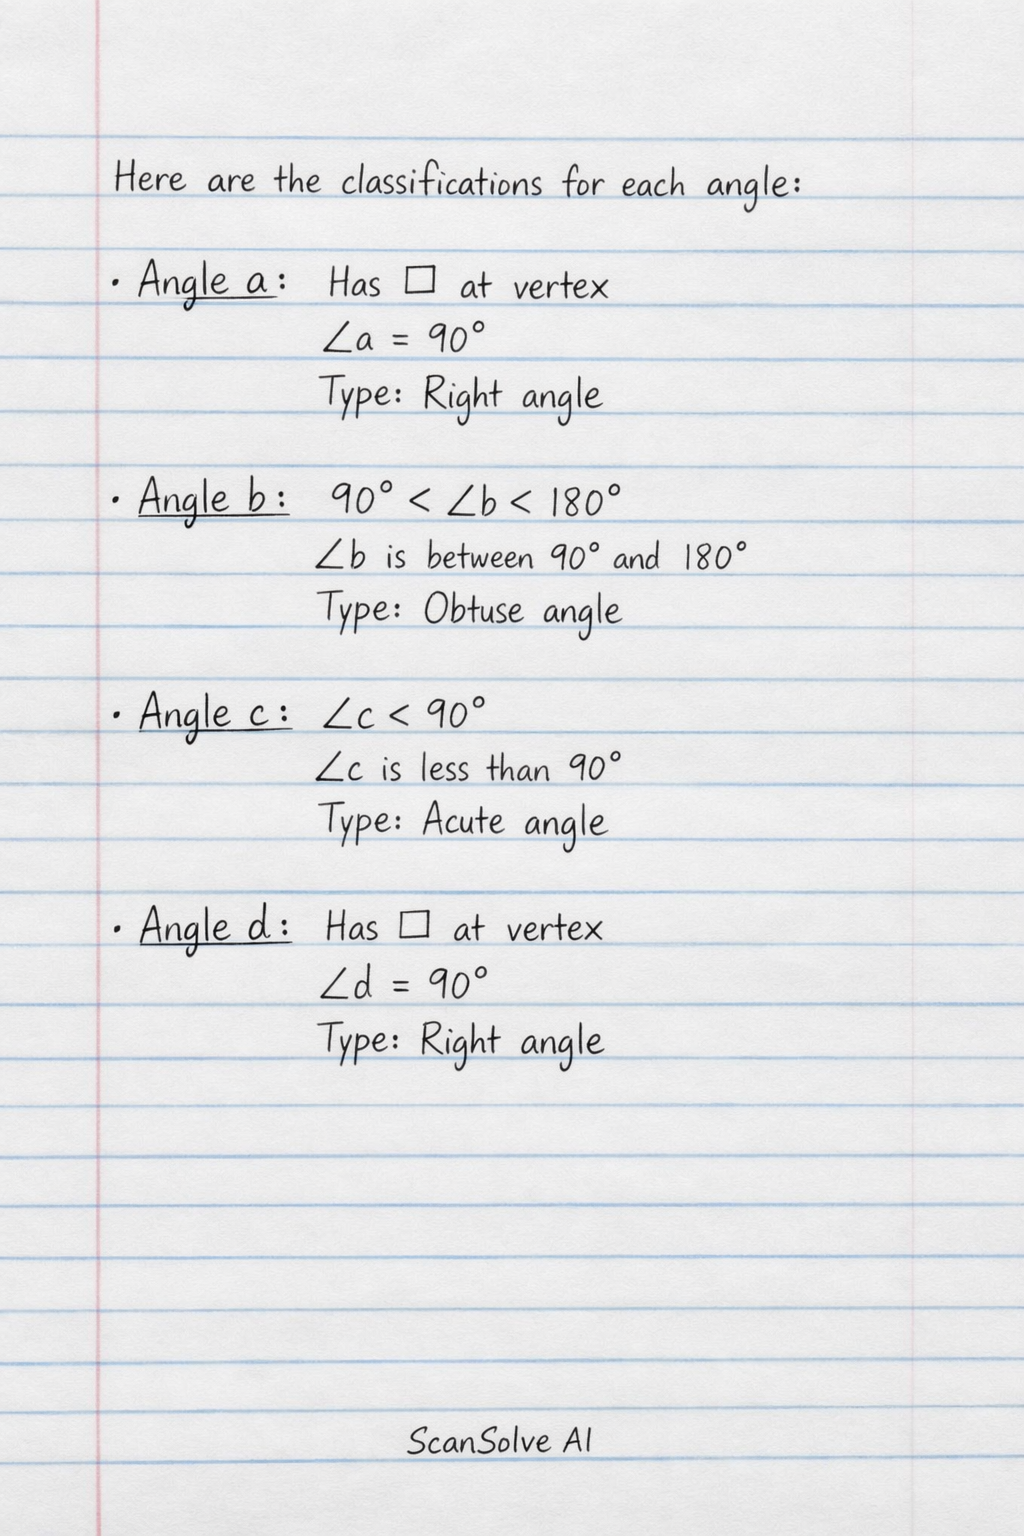 Here are the classifications for each angle:
• Angle a: Has □ at vertex
∠a = 90°
Type: Right angle
• Angle b: 90° < ∠b < 180°
∠b is between 90° and 180°
Type: Obtuse angle
• Angle c: ∠c < 90°
∠c is less than 90°
Type: Acute angle
• Angle d: Has □ at vertex
∠d = 90°
Type: Right angle
ScanSolve AI